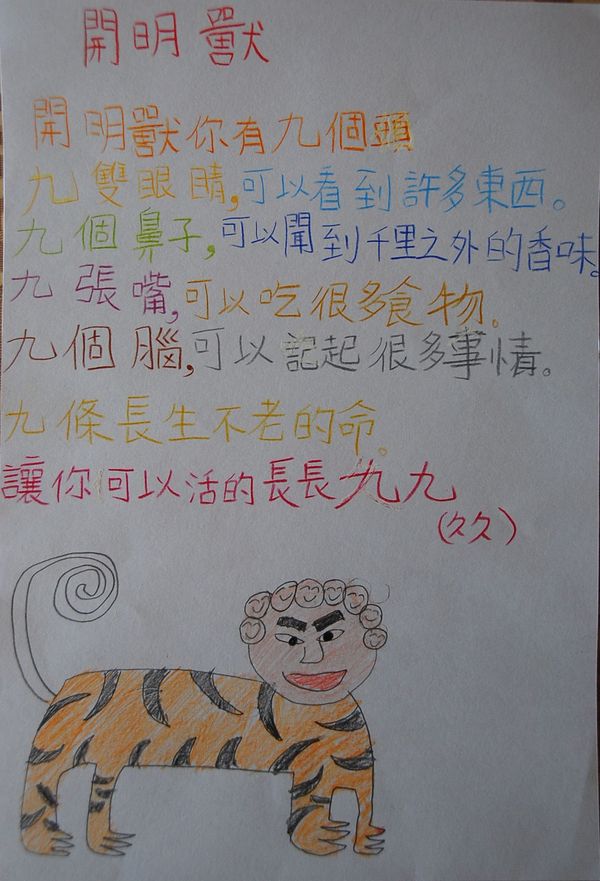 開明獸
開明獸你有九個頭
九雙眼睛,可以看到許多東西。
九個鼻子,可以聞到千里之外的香味。
九張嘴,可以吃很多食物。
九個腦,可以記起很多事情。
九條長生不老的命。
讓你可以活的長長九九
(久久)